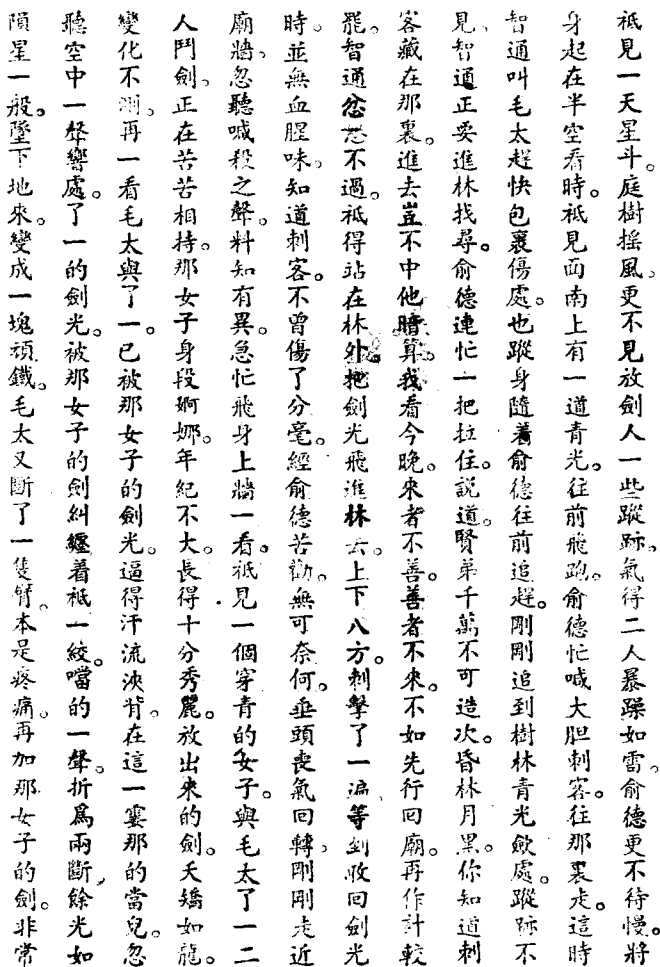 祇見一天星斗。庭樹搖風。更不見放劍人一些蹤跡。氣得二人暴躁如雷。俞德更不待慢。將
身起在半空看時。祇見面南上有一道青光。往前飛跑。俞德忙喊大胆刺客。往那裏走。這時
智通叫毛太趕快包裹傷處。也蹤身隨着俞德往前追趕。剛剛追到樹林。青光斂處。蹤跡不
見、智通正要進林找尋。俞德連忙一把拉住。說道。賢弟千萬不可造次。昏林月黑。你知道刺
客藏在那裏。進去豈不中他暗算。我看今晚來者不善。善者不來。不如先行回廟。再作計較
罷。智通忿怒不過。祇得站在林外。把劍光飛進林去。上下八方。刺擊了一遍。等到收回劍光
時。並無血腥味。知道刺客。不曾傷了分毫。經俞德苦勸。無可奈何。垂頭喪氣回轉。剛剛走近
廟牆。忽聽喊殺之聲。料知有異。急忙飛身上牆一看。祇見一個穿青的女子。與毛太了一二
人鬥劍。正在苦苦相持。那女子身段婀娜。年紀不大。長得十分秀麗。放出來的劍。夭矯如龍。
變化不測。再一看毛太與了一。已被那女子的劍光。逼得汗流浹背。在這一霎那的當兒。忽
聽空中一聲響處。了一的劍光。被那女子的劍糾纏着祇一絞。噹的一聲。折爲兩斷、餘光如
隕星一般。墜下地來。變成一塊頑鐵。毛太又斷了一隻臂。本是疼痛。再加那女子的劍。非常